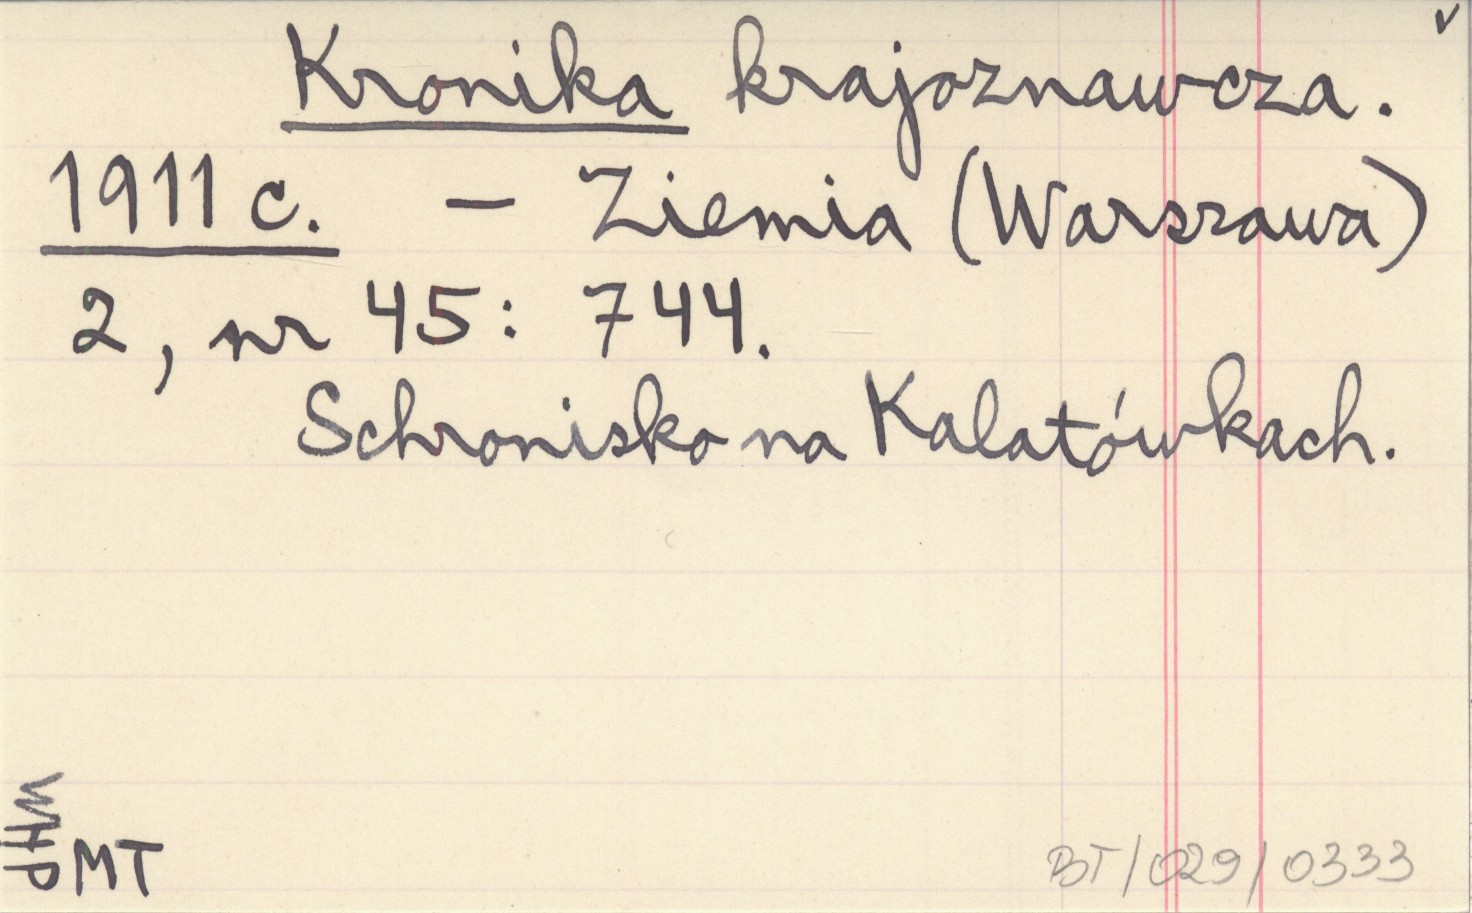 Kronika krajoznawcza.
1911 c. – Ziemia (Warszawa)
2, nr 45: 744.
Schronisko na Kalatówkach.
MT
BT/029/0333